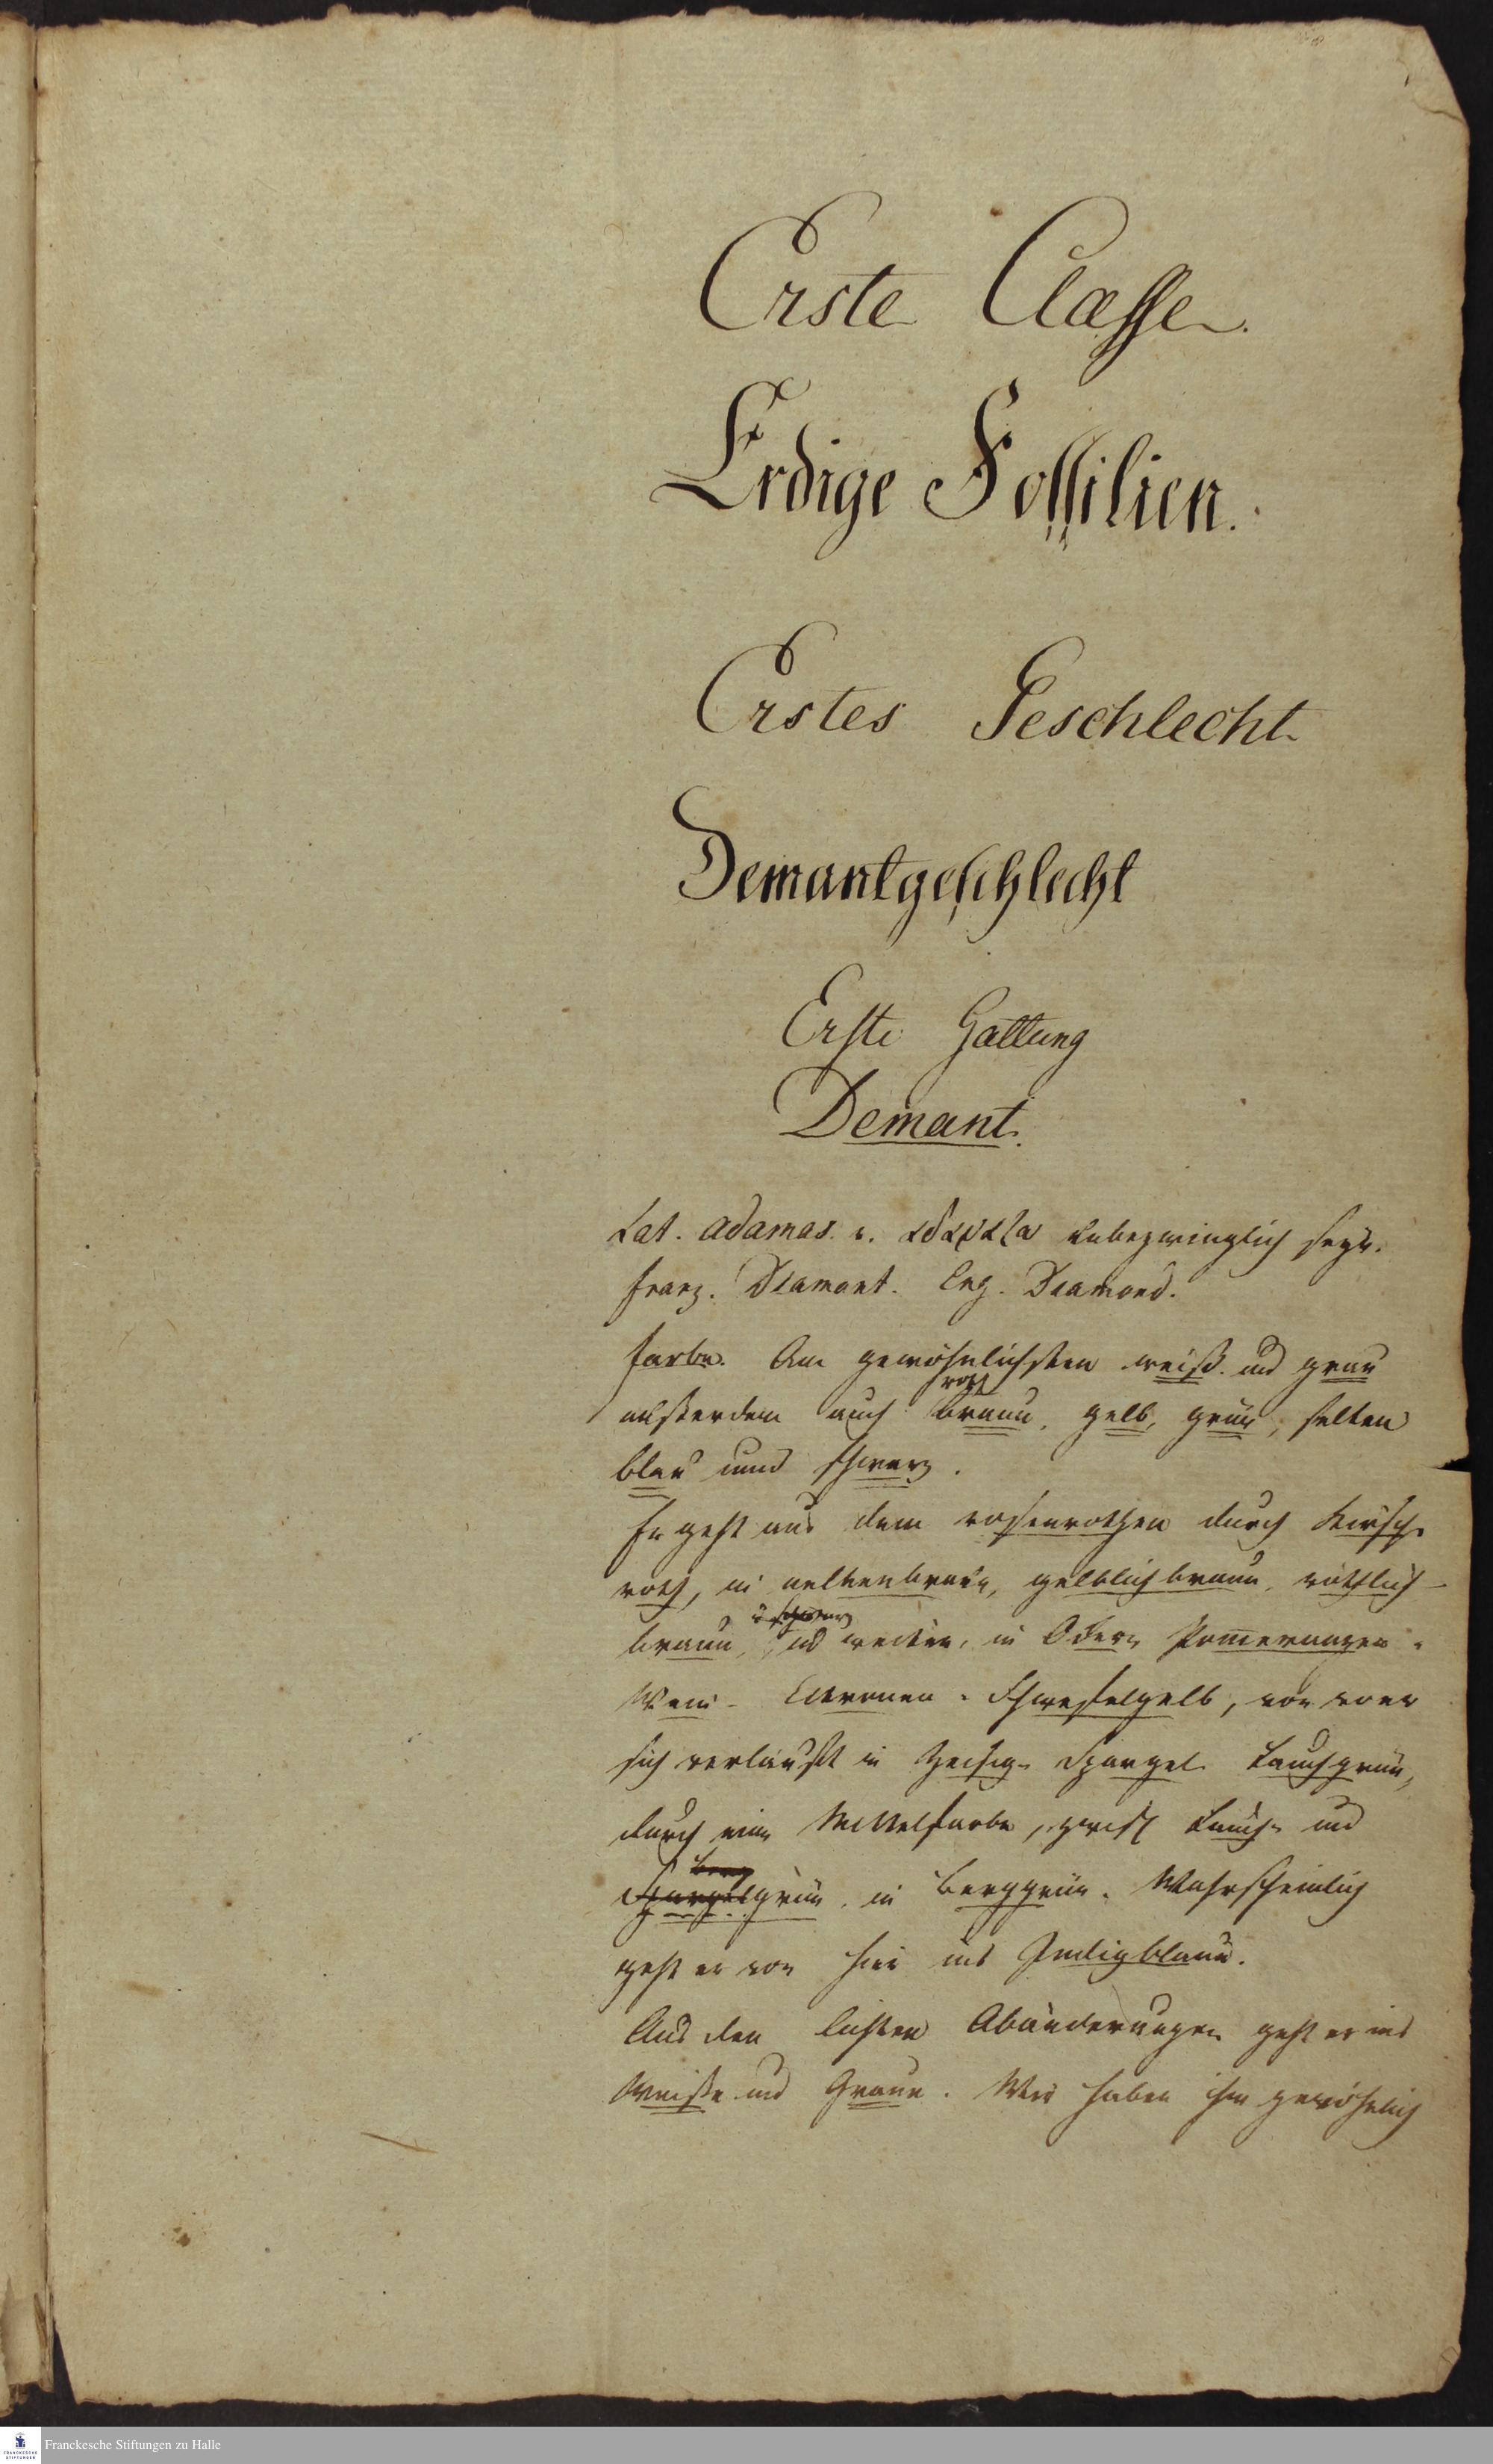 Erste Classe.
Erdige Fossilien.
Erstes Geschlecht
Demantgeschlecht
Erste Gattung
Demant.
Lat. adamas. v. unbezwinglich seyn.
franz. Diamant. Eng. Diamond.
Farbe. Am gewöhnlichsten weiß und grau
roth
außerdem auch braun, gelb, grün, selten
blau und schwarz.
Er geht aus dem rosenrothen durch Kirsch-
roth, in nelkenbraun, gelblichbraun, röthlich-
u schwarz
braun, und weiter, in Ocker- Pommeranzen-
Wein- Citronen- Schwefelgelb, von wo er
sich verläuft in Zeisig- Spargel- Lauchgrün,
durch eine Mittelfarbe, zwisch Lauch- und
berg
Spargelgrün, in Berggrün. Wahrscheinlich
geht er von hier ins Indigblaue.
Aus den lichten Abänderungen geht er ins
Weiße und Graue. Wir haben ihn gewöhnlich
Franckesche Stiftungen zu Halle